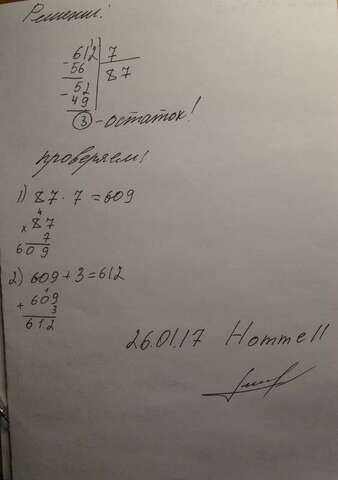 Решение:
612 7
- 56 87
52
- 49
3 - остаток!
проверяем!
1) 87 · 7 = 609
4
× 87
7
609
2) 609 + 3 = 612
1
+ 609
3
612
26.01.17 Hommell